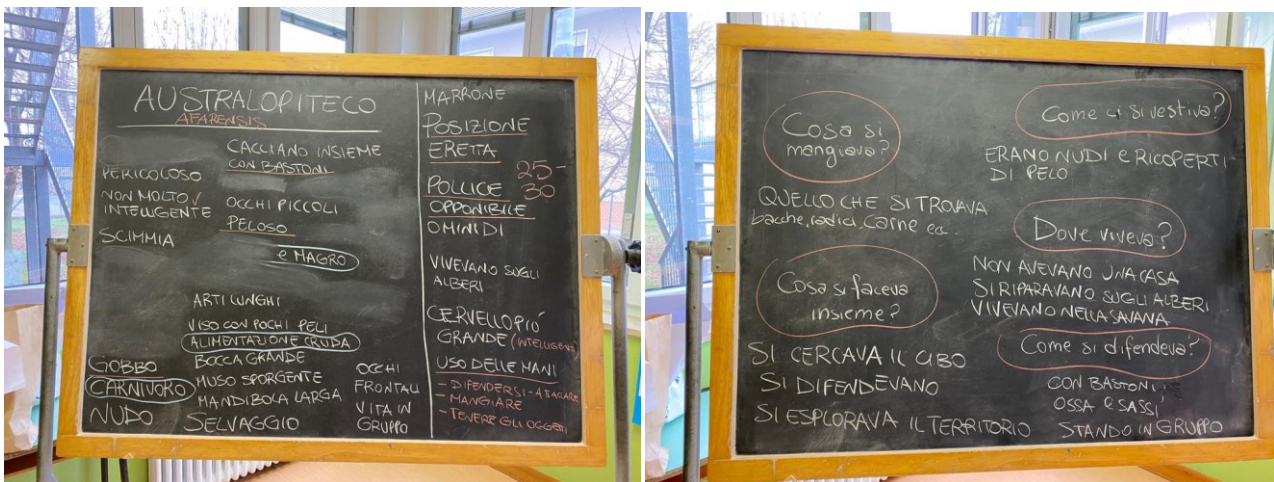 AUSTRALOPITECO
AFARENSIS
CACCIANO INSIEME
CON BASTONI
PERICOLOSO
NON MOLTO
INTELLIGENTE
OCCHI PICCOLI
PELOSO
SCIMMIA
e MAGRO
ARTI LUNGHI
VISO CON POCHI PELI
ALIMENTAZIONE CRUDA
BOCCA GRANDE
GOBBO
CARNIVORO
MUSO SPORGENTE
MANDIBOLA LARGA
NUDO
SELVAGGIO
OCCHI
FRONTALI
VITA IN
GRUPPO
MARRONE
POSIZIONE
ERETTA
25-
30
POLLICE
OPPONIBILE
OMINIDI
VIVEVANO SUGLI
ALBERI
CERVELLO PIÚ
GRANDE (INTELLIGENTE)
USO DELLE MANI
- DIFENDERSI - ATTACCARE
- MANGIARE
- TENERE GLI OGGETTI
Cosa si
mangiava?
QUELLO CHE SI TROVAVA
bacche, radici, carne ec..
Cosa si faceva
insieme?
SI CERCAVA IL CIBO
SI DIFENDEVANO
SI ESPLORAVA IL TERRITORIO
Come ci si vestiva?
ERANO NUDI e RICOPERTI
DI PELO
Dove viveva?
NON AVEVANO UNA CASA
SI RIPARAVANO SUGLI ALBERI
VIVEVANO NELLA SAVANA
Come si difendeva?
CON BASTONI,
OSSA e SASSI
STANDO IN GRUPPO